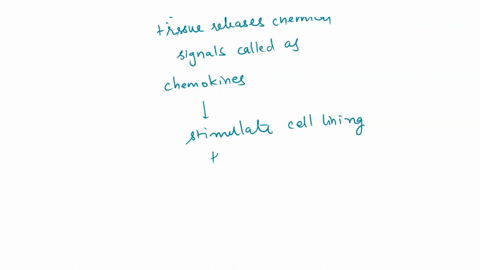 tissue releases chemical
signals called as
chemokines
↓
stimulate cell lining
t